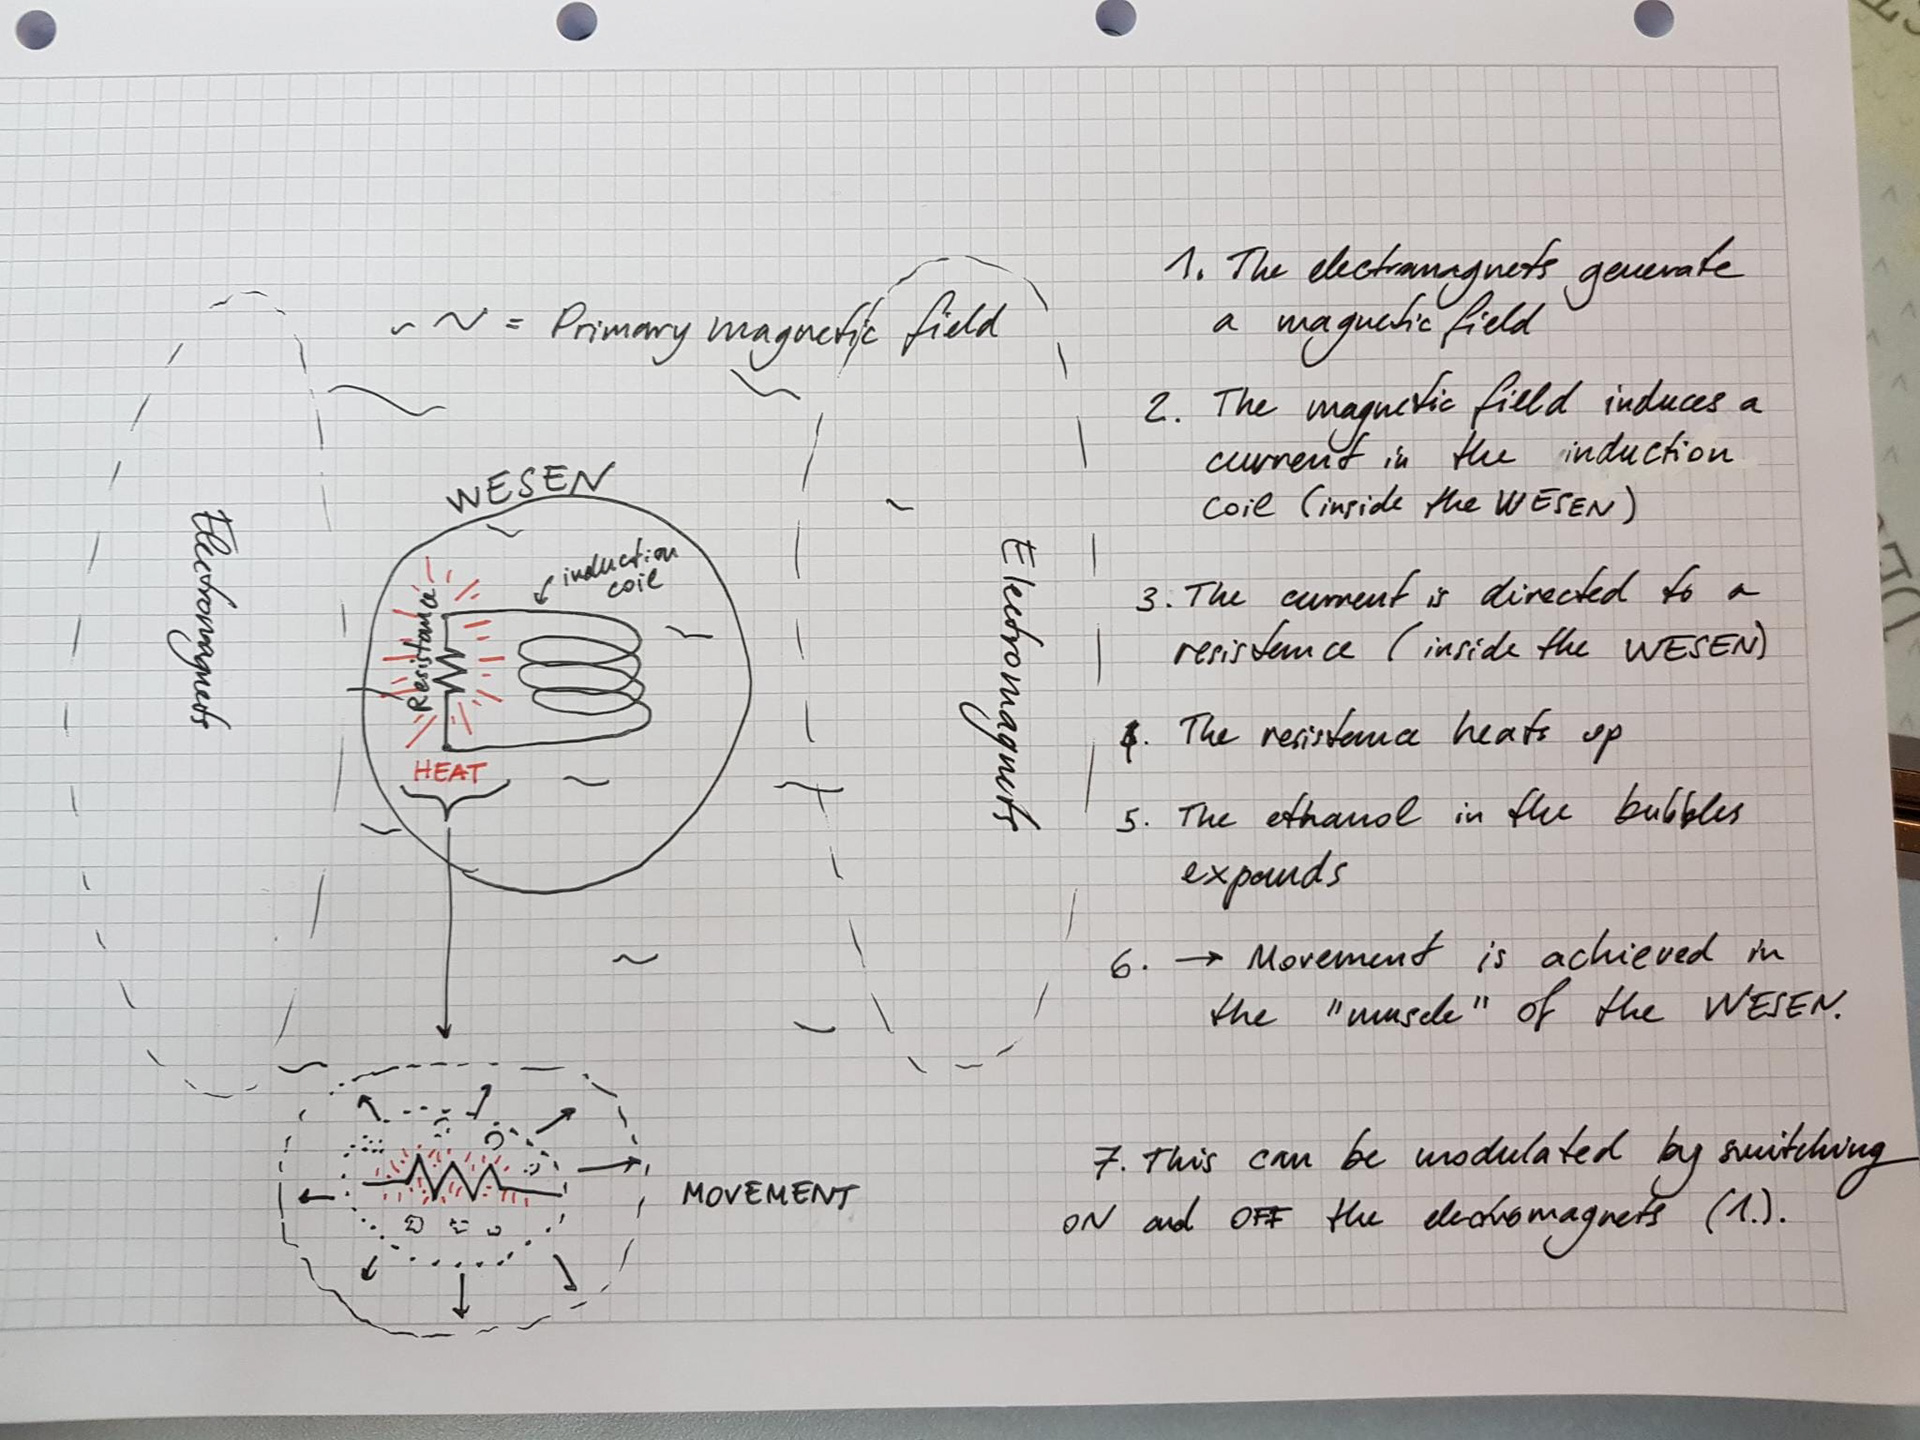 ~ ~ = Primary magnetic field
WESEN
induction
coil
Resistance
HEAT
Electromagnets
Electromagnets
MOVEMENT
1. The electromagnets generate
a magnetic field
2. The magnetic field induces a
current in the induction
coil (inside the WESEN)
3. The current is directed to a
resistance (inside the WESEN)
4. The resistance heats up
5. The ethanol in the bubbles
expands
6. → Movement is achieved in
the "muscle" of the WESEN.
7. This can be modulated by switching
ON and OFF the electromagnets (1.).